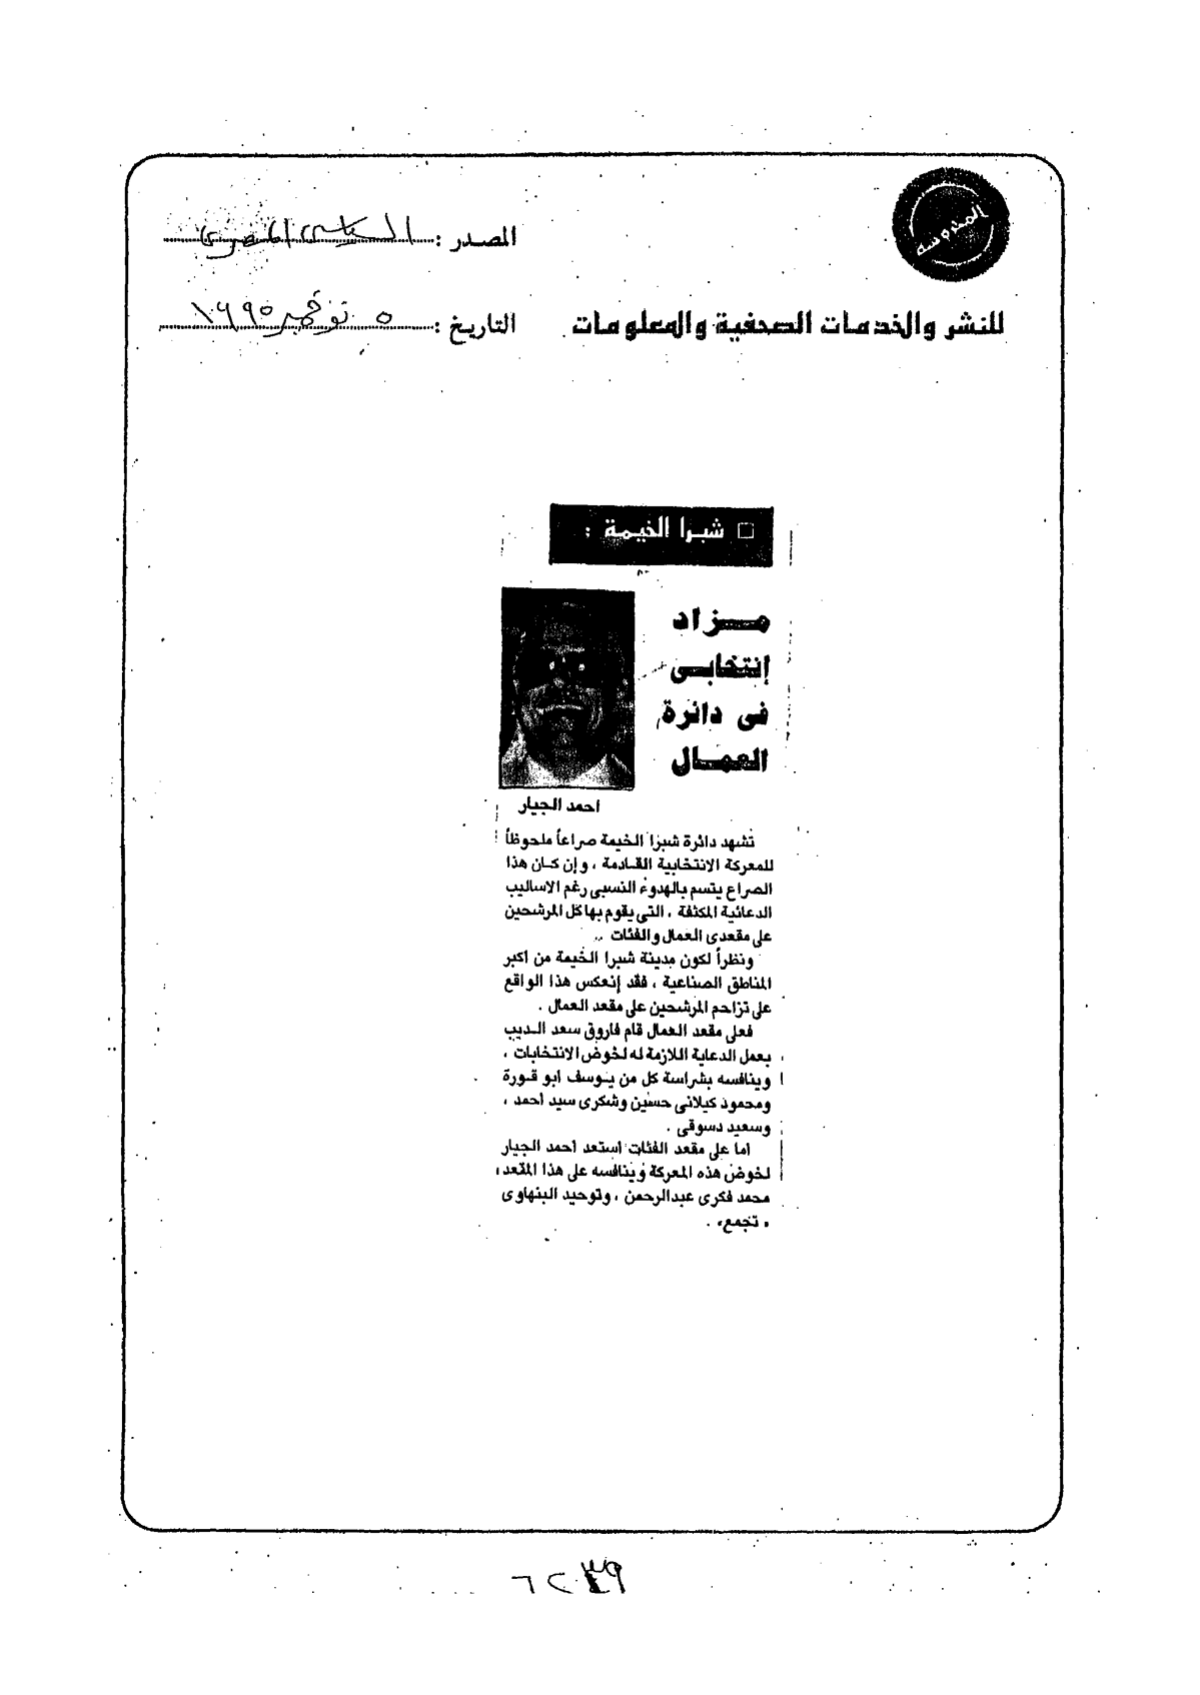 المحروسة
للنشر والخدمات الصحفية والمعلومات
المصدر : السياسى المصرى
التاريخ : ٥ نوفمبر ١٩٩٥
□ شبرا الخيمة :
مزاد
إنتخابى
فى دائرة
العمال
احمد الجيار
تشهد دائرة شبرا الخيمة صراعاً ملحوظاً
للمعركة الانتخابية القادمة ، وإن كان هذا
الصراع يتسم بالهدوء النسبى رغم الاساليب
الدعائية المكثفة ، التى يقوم بها كل المرشحين
على مقعدى العمال والفئات ..
ونظراً لكون مدينة شبرا الخيمة من اكبر
المناطق الصناعية ، فقد إنعكس هذا الواقع
على تزاحم المرشحين على مقعد العمال .
فعلى مقعد العمال قام فاروق سعد الديب
بعمل الدعاية اللازمة له لخوض الانتخابات ،
وينافسه بشراسة كل من يوسف ابو قورة
ومحمود كيلانى حسين وشكرى سيد أحمد ،
وسعيد دسوقى .
اما على مقعد الفئات استعد أحمد الجيار
لخوض هذه المعركة وينافسه على هذا المقعد ،
محمد فكرى عبدالرحمن ، وتوحيد البنهاوى
، تجمع، .